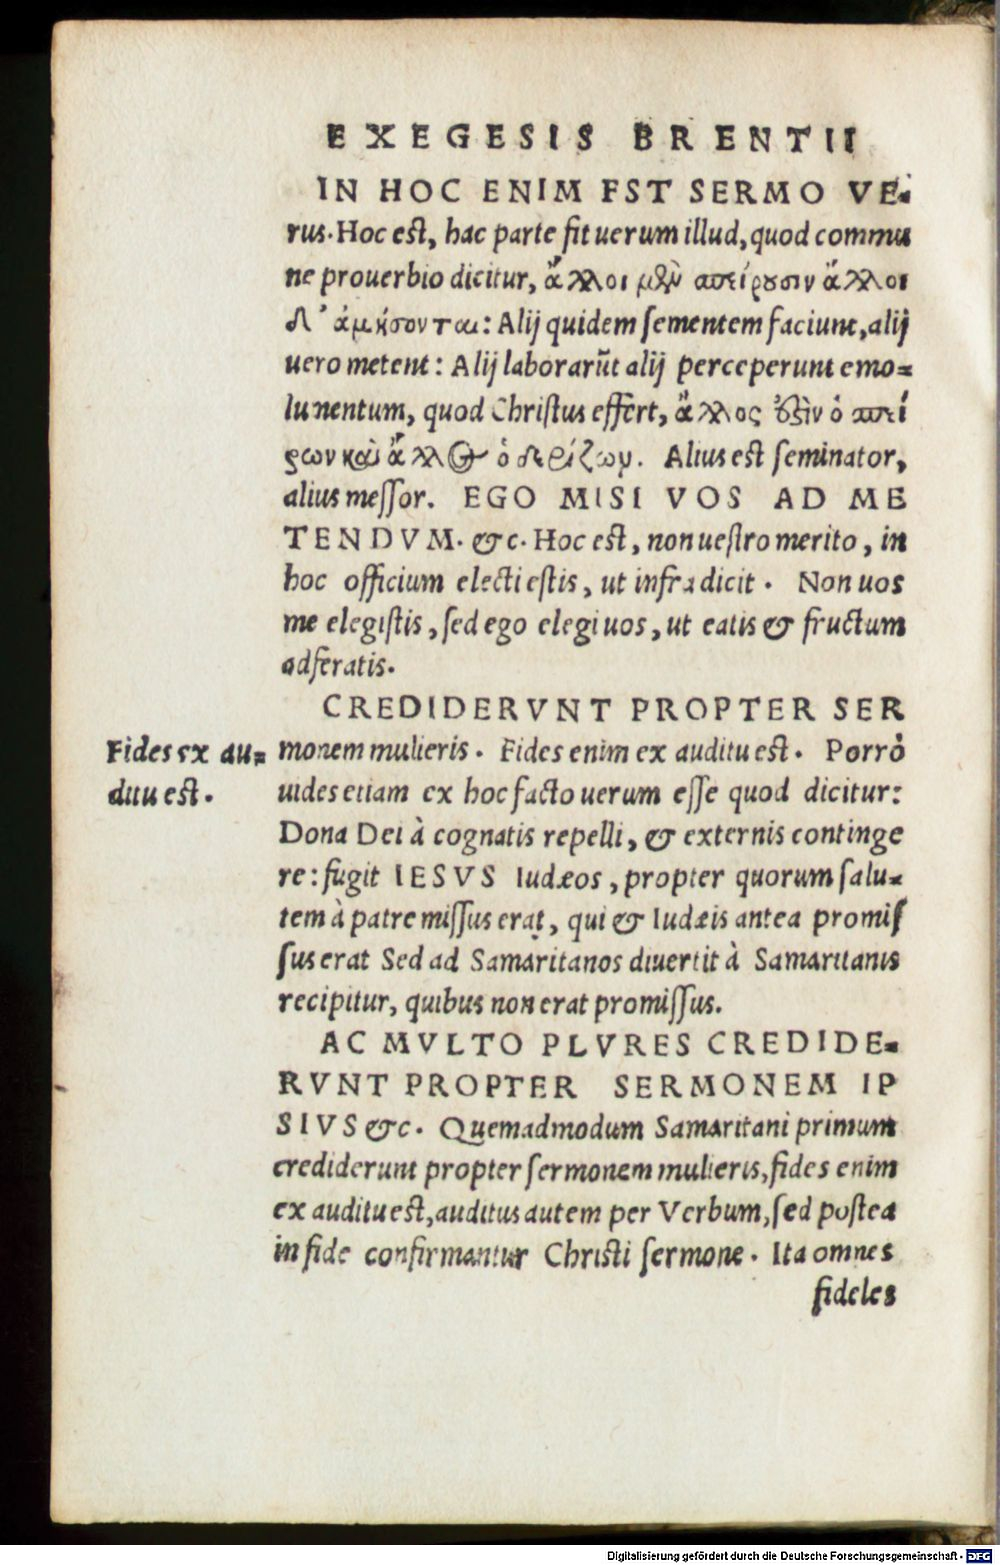 EXEGESIS BRENTII
IN HOC ENIM EST SERMO VE-
rus. Hoc est, hac parte fit uerum illud, quod commu
ne prouerbio dicitur, ἄλλοι μὲν σπείρουσιν ἄλλοι
δ' ἀμήσονται: Alij quidem sementem faciunt, alij
uero metent: Alij laborarūt alij perceperunt emo-
lumentum, quod Christus effert, ἄλλος ἐστὶν ὁ σπεί
ρων καὶ ἄλλος ὁ θερίζων. Alius est seminator,
alius messor. EGO MISI VOS AD ME
TENDVM. &c. Hoc est, non uestro merito, in
hoc officium electi estis, ut infra dicit. Non uos
me elegistis, sed ego elegi uos, ut eatis & fructum
adferatis.
CREDIDERVNT PROPTER SER
Fides ex au-
ditu est.
monem mulieris. Fides enim ex auditu est. Porrò
uides etiam ex hoc facto uerum esse quod dicitur:
Dona Dei à cognatis repelli, & externis continge
re: fugit IESVS Iudæos, propter quorum salu-
tem à patre missus erat, qui & Iudæis antea promis
sus erat Sed ad Samaritanos diuertit à Samaritanis
recipitur, quibus non erat promissus.
AC MVLTO PLVRES CREDIDE-
RVNT PROPTER SERMONEM IP
SIVS &c. Quemadmodum Samaritani primum
crediderunt propter sermonem mulieris, fides enim
ex auditu est, auditus autem per Verbum, sed postea
in fide confirmantur Christi sermone. Ita omnes
fideles
Digitalisierung gefördert durch die Deutsche Forschungsgemeinschaft - DFG